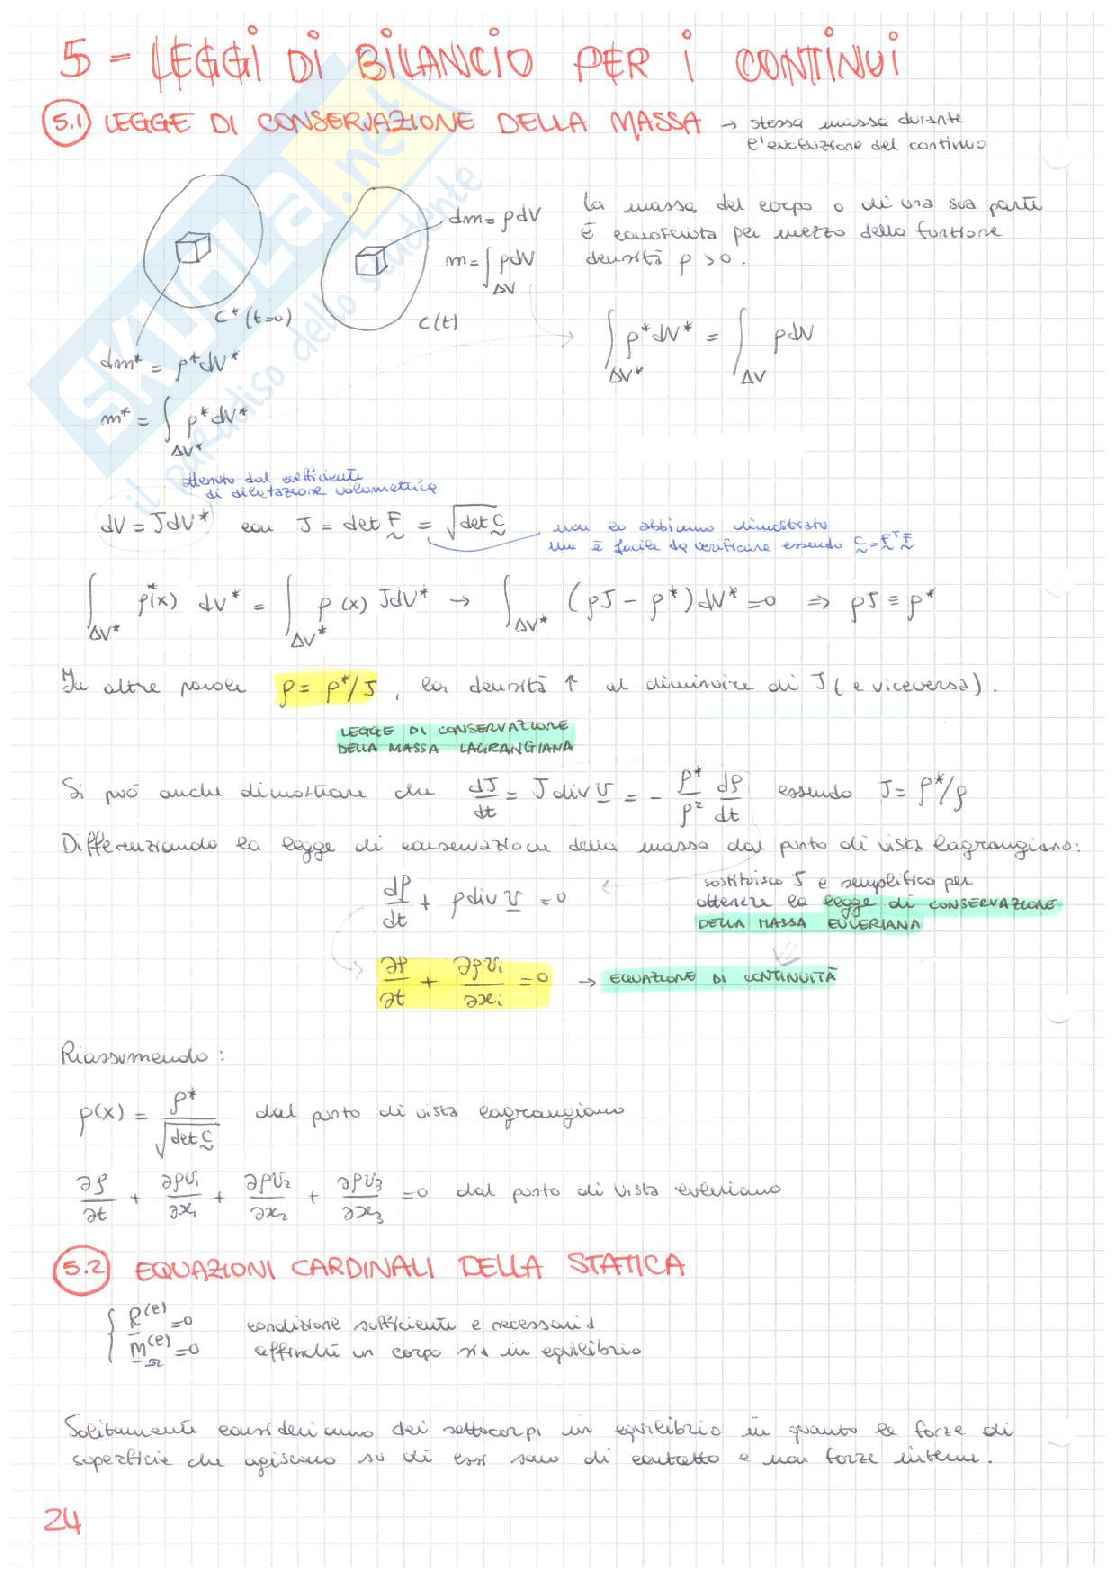 5 - LEGGI DI BILANCIO PER I CONTINUI
5.1 LEGGE DI CONSERVAZIONE DELLA MASSA → stessa massa durante
l'evoluzione del continuo
dm = ρdV
m = ∫_ΔV ρdV
C* (t=0)
C(t)
La massa del corpo o di una sua parte
è
per mezzo della funzione
densità ρ > 0.
dm* = ρ* dV*
m* = ∫_ΔV* ρ* dV*
∫_ΔV* ρ* dV* = ∫_ΔV ρdV
SKUOLA.net
il paradiso dello studente
dal coefficiente
di dilatazione volumetrica
dV = JdV* con J = det F̰ = √det C̰
non lo abbiamo dimostrato
ma è facile da verificare essendo C̰ = F̰ᵀF̰
∫_ΔV* ρ*(x) dV* = ∫_ΔV* ρ(x) JdV* → ∫_ΔV* (ρJ - ρ*) dV* = 0 ⇒ ρJ ≡ ρ*
In altre parole ρ = ρ*/J , la densità ↑ al diminuire di J (e viceversa).
LEGGE DI CONSERVAZIONE
DELLA MASSA LAGRANGIANA
Si può anche dimostrare che dJ/dt = J div v = - ρ*/ρ² dρ/dt essendo J = ρ*/ρ
Differenziando la legge di conservazione della massa dal punto di vista lagrangiano:
dρ/dt + ρ div v = 0
sostituisco J e semplifico per
ottenere la legge di CONSERVAZIONE
DELLA MASSA EULERIANA
∂ρ/∂t + ∂ρvᵢ/∂xᵢ = 0 → EQUAZIONE DI CONTINUITÀ
Riassumendo:
ρ(x) = ρ*/√det C̰ dal punto di vista lagrangiano
∂ρ/∂t + ∂ρv₁/∂x₁ + ∂ρv₂/∂x₂ + ∂ρv₃/∂x₃ = 0 dal punto di vista euleriano
5.2 EQUAZIONI CARDINALI DELLA STATICA
{ R^(e) = 0 condizione sufficiente e necessaria
M_Ω^(e) = 0 affinché un corpo sia in equilibrio
Solitamente consideriamo dei sottocorpi in equilibrio in quanto le forze di
superficie che agiscono su di essi sono di contatto e non forze interne.
24